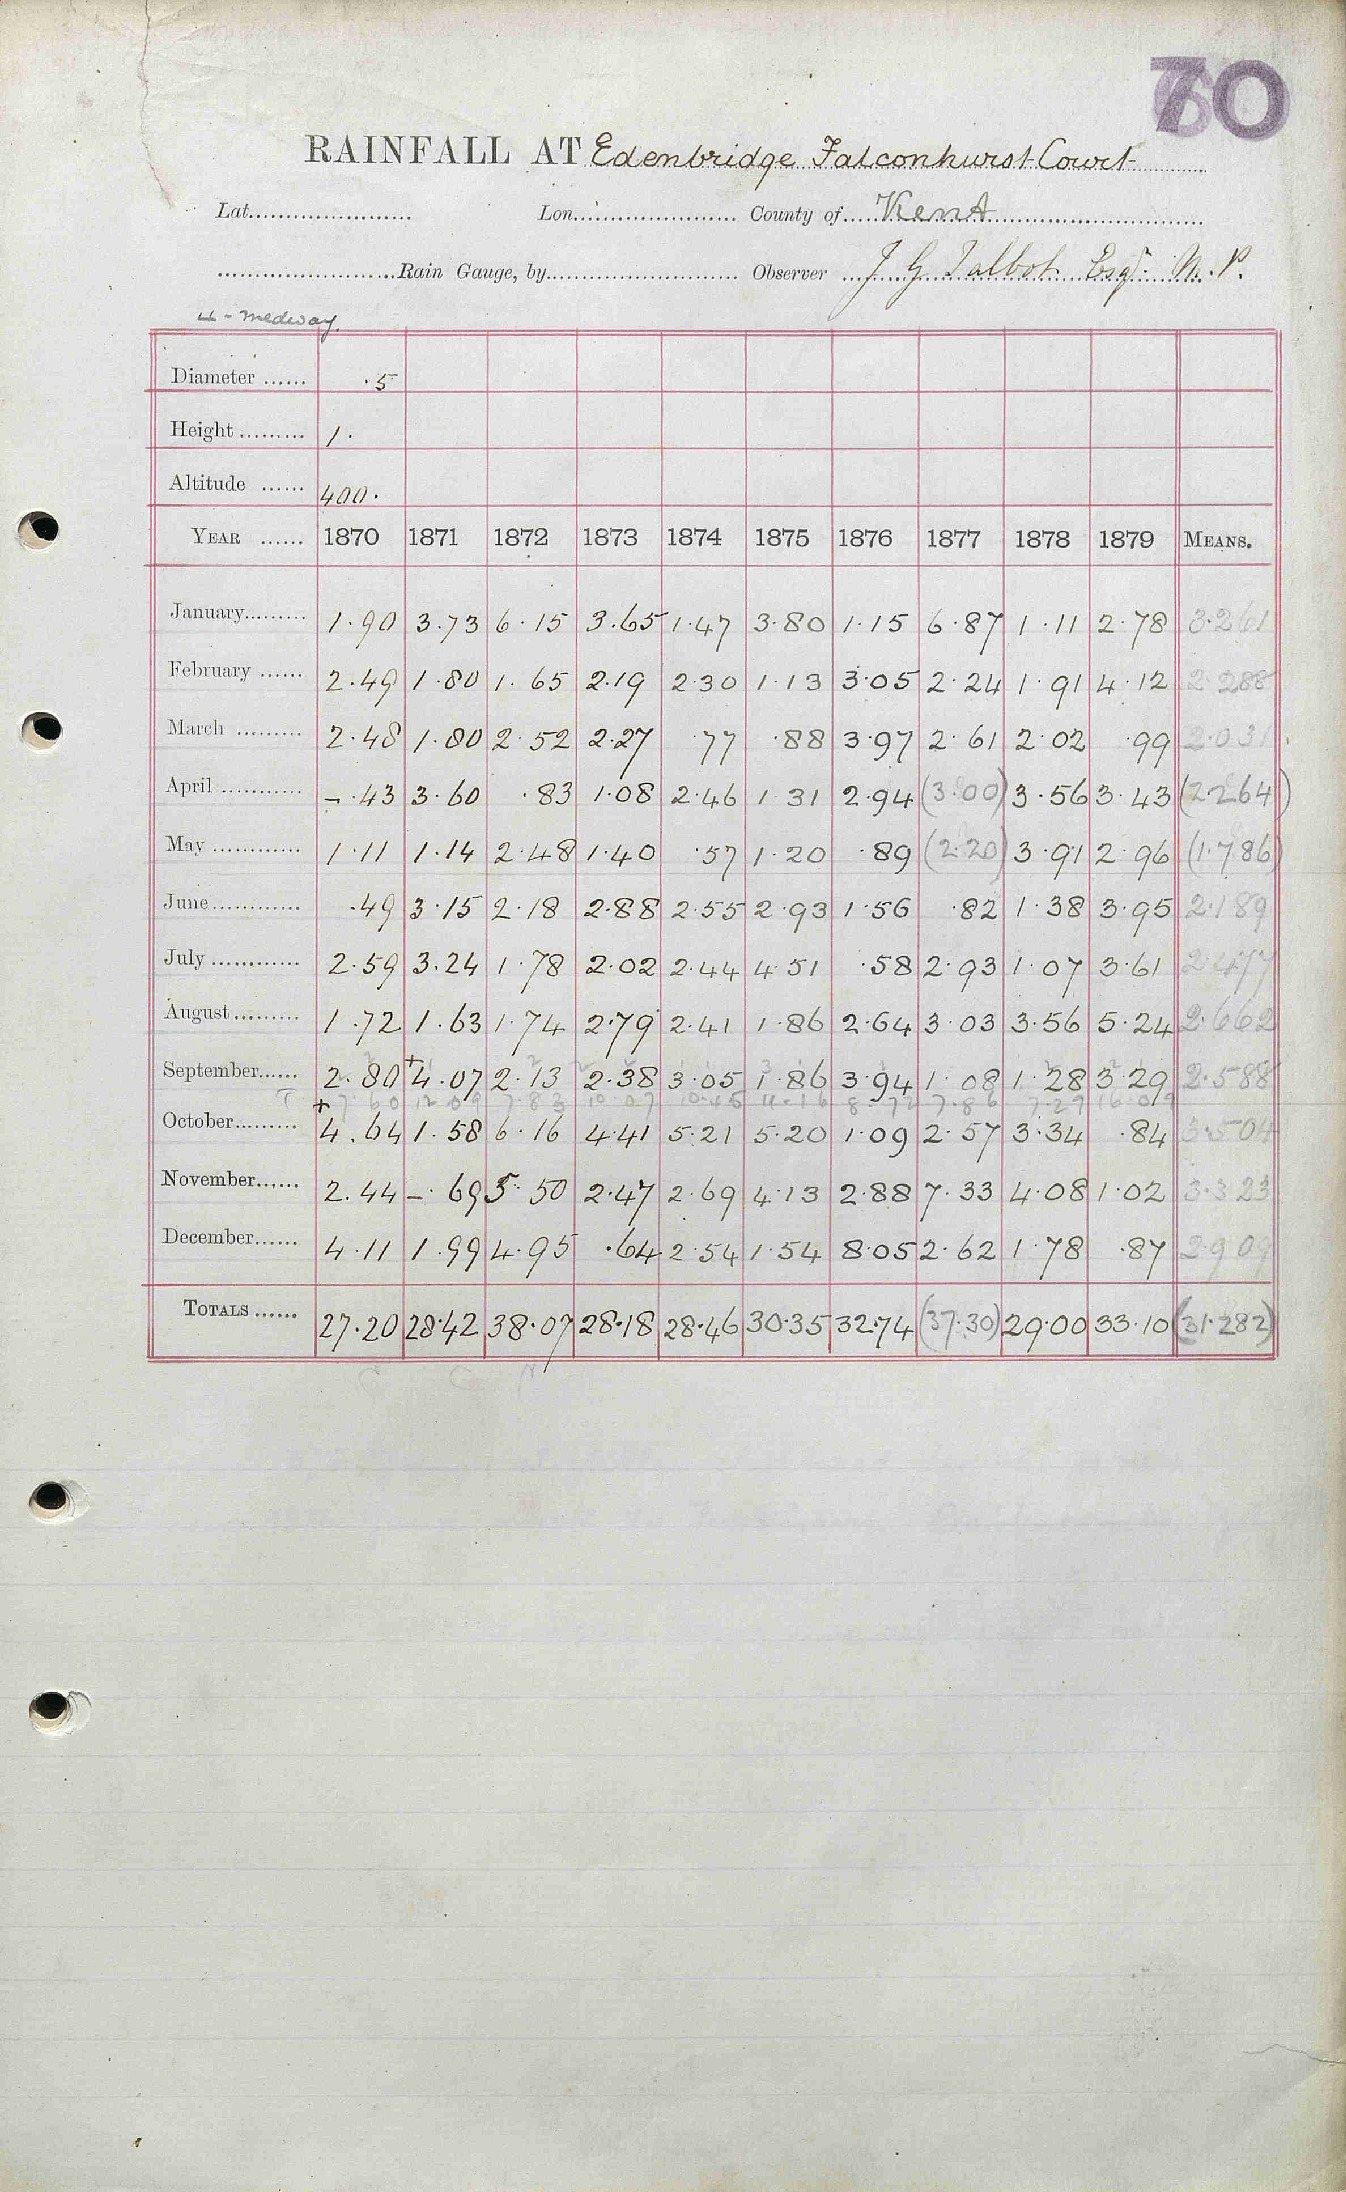 70
RAINFALL AT Edenbridge Falconhurst Court
Lat. Lon. County of Kent
Rain Gauge, by Observer J G Talbot Esqr. M.P.
Medway
Diameter ...... .5
Height ......... 1.
Altitude ...... 400.
YEAR ...... 1870 1871 1872 1873 1874 1875 1876 1877 1878 1879 MEANS.
January......... 1.90 3.73 6.15 3.65 1.47 3.80 1.15 6.87 1.11 2.78 3.261
February ...... 2.49 1.80 1.65 2.19 2.30 1.13 3.05 2.24 1.91 4.12 2.288
March ......... 2.48 1.80 2.52 2.27 .77 .88 3.97 2.61 2.02 .99 2.031
April ............ -.43 3.60 .83 1.08 2.46 1.31 2.94 (3.00) 3.56 3.43 (2.264)
May ............ 1.11 1.14 2.48 1.40 .57 1.20 .89 (2.20) 3.91 2.96 (1.786)
June............ .49 3.15 2.18 2.88 2.55 2.93 1.56 .82 1.38 3.95 2.189
July ............ 2.59 3.24 1.78 2.02 2.44 4.51 .58 2.93 1.07 3.61 2.477
August ......... 1.72 1.63 1.74 2.79 2.41 1.86 2.64 3.03 3.56 5.24 2.662
September...... 2.80 +4.07 2.13 2.38 3.05 1.86 3.94 1.08 1.28 3.29 2.588
7.60 12.09 7.83 10.07 10.45 11.16 8.72 7.86 7.29 16.09
October......... +4.64 1.58 6.16 4.41 5.21 5.20 1.09 2.57 3.34 .84 3.504
November...... 2.44 -.69 5.50 2.47 2.69 4.13 2.88 7.33 4.08 1.02 3.323
December...... 4.11 1.99 4.95 .64 2.54 1.54 8.05 2.62 1.78 .87 2.909
TOTALS ...... 27.20 28.42 38.07 28.18 28.46 30.35 32.74 (37.30) 29.00 33.10 (31.282)